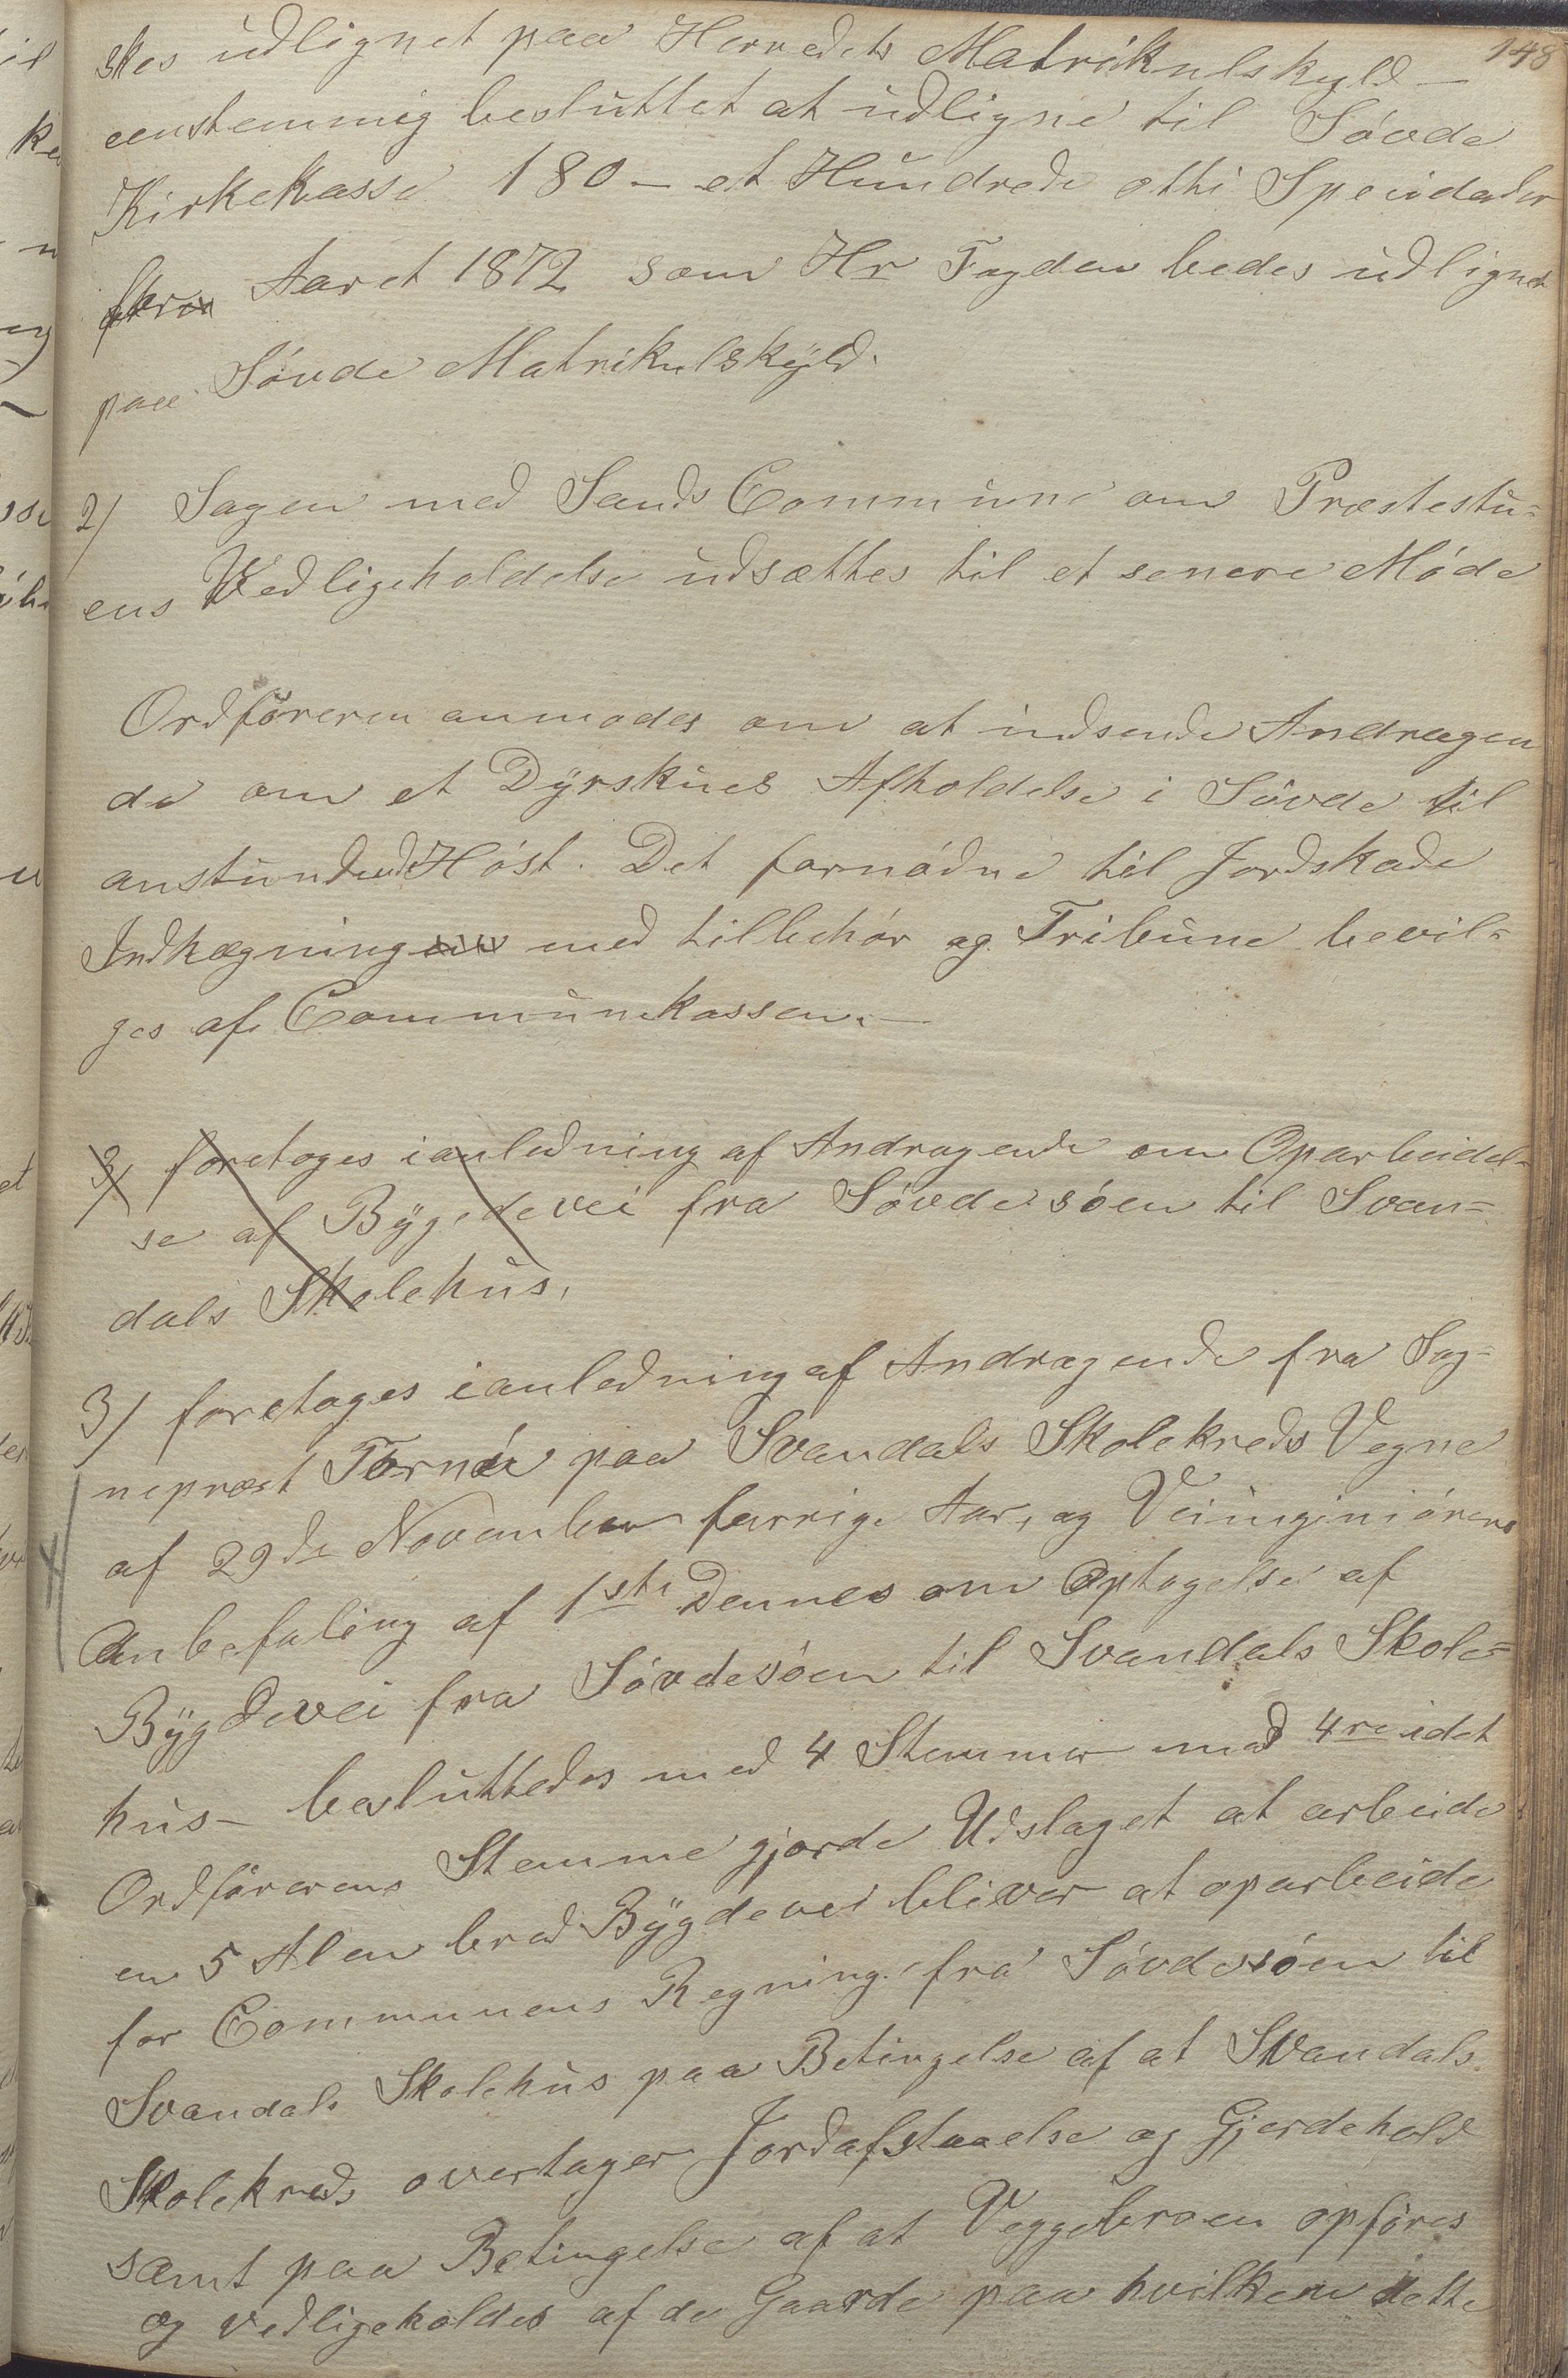 148
skes udlignet paa Herredets Matrikulskyld –
eenstemmig besluttet at udligne til Søvde
Kirkekasse 180 – et Hundrede otti Speideder
for Aaret 1872 som Hr Fogden bedes udlignet
paa Søvde Matrikulskyld.
2/ Sagen med Sands Commune om Præstestu=
ens Vedligeholdelse udsættes til et senere Møde
Ordføreren anmodes om at indsende Andragen
de om et Dyrskues Afholdelse i Søvde til
anstundende Høst. Det fornødne til Jordskade
Indhægning med tilbehør og Tribune bevil=
ges af Communekassen. –
3/ foretoges ianledning af Andragende om Oparbeidel=
se af Bygdevei fra Søvdesøen til Svan=
dals Skolehus.
3/ foretoges ianledning af Andragende fra Sog=
nepræst Tornøe paa Svandals Skolekreds Vegne
af 29de November forrige Aar, og Veiinginiørens
Anbefaling af 1ste Dennes om Optagelse af
Bygdevei fra Søvdesøen til Svandals Skole=
hus – besluttedes med 4 Stemmer mod 4re idet
Ordførerens Stemme gjorde Udslaget at arbeide
en 5 Alen bred Bygdevei bliver at oparbeide
for Communens Regning fra Søvdesøen til
Svandals Skolehus paa Betingelse af at Svandals
Skolekreds overtager Jordafstaaelse og Gjerdehold
samt paa Betingelse af at Veggebroen opføres
og vedligeholdes af de Gaarde paa hvilken dette